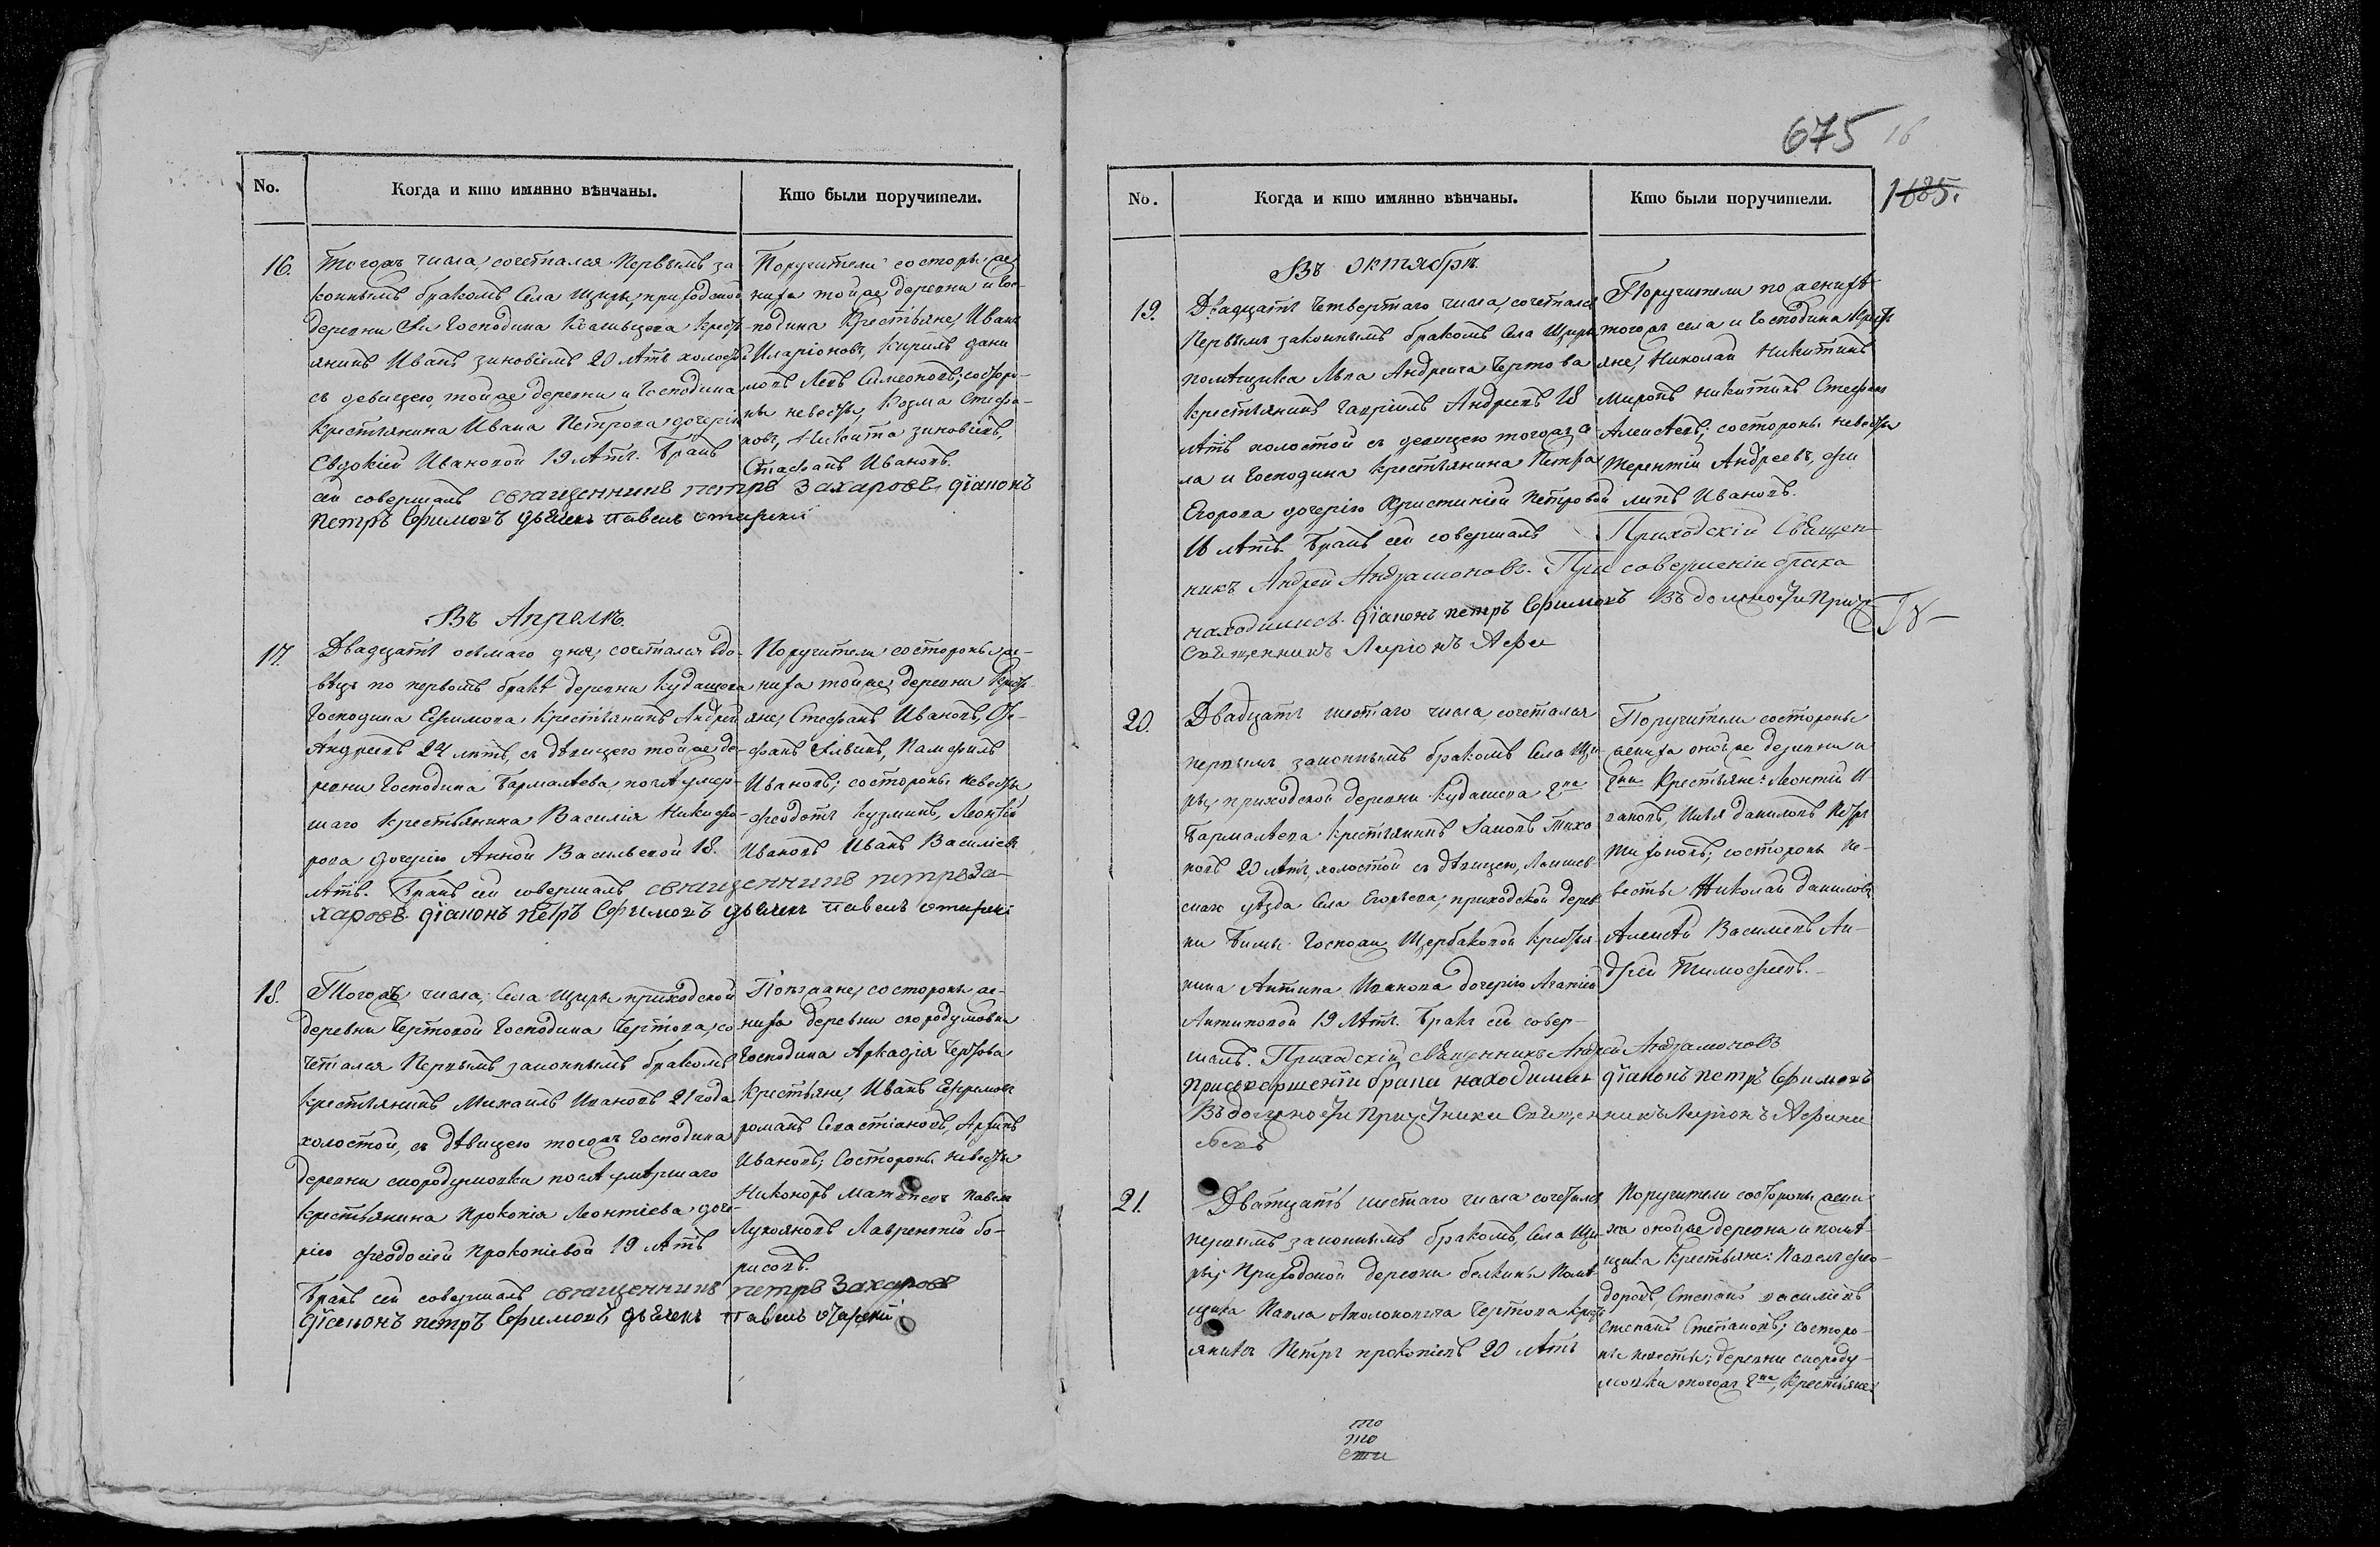 No.
Когда и кто имянно вѣнчаны.
Кто были поручители.
16.
Тогожъ числа, сочетался первымъ за-
коннымъ бракомъ Села Щиры, приходской
деревни Господина Кресть-
янинъ Иванъ Зиновіевъ 20 лѣтъ холостъ
съ девицею, тойже деревни и Господина
крестьянина Ивана Петрова дочерію
Евдокіей Ивановой 19 лѣтъ. Бракъ
сей совершалъ священникъ петръ Захаровъ діаконъ
петръ Ефимовъ дьячекъ павелъ
Поручители со стороны же-
ниха тойже деревни и Гос-
подина Крестьяне, Иванъ
Иларіоновъ, Кирилъ Дани
ловъ Левъ Симеоновъ; состоро-
ны невесты, Козма Стефа-
новъ, Никита Зиновіевъ,
Стефанъ Ивановъ.
Въ Апрелѣ.
17.
Двадцать осьмаго дня, сочетался вдо-
вецъ по первомъ бракѣ деревни Кудашева
Господина Ефимова Крестьянинъ Андрей
Андреевъ 24 лѣтъ, съ дѣвицею тойже де-
ревни Господина Бармалѣева, послѣ умер-
шаго крестьянина Василія Никифо-
рова дочерію Анной Васильевой 18.
лѣтъ. Бракъ сей совершалъ священникъ петръ За-
харовъ діаконъ петръ Ефимовъ дьячекъ павелъ
Поручители состороны же-
ниха тойже деревни Кресть-
яне, Стефанъ Ивановъ,
Памфилъ
Ивановъ; состороны невесты
Феодотъ Кузминъ, Леонтій
Ивановъ Иванъ Василіевъ
18.
Тогожъ числа; Села Щиры приходской
деревни Чертовой Господина Чертова, со-
четался первымъ законнымъ бракомъ
крестьянинъ Михаилъ Ивановъ 21 года
холостой, съ дѣвицею тогожъ Господина
деревни скородумовки послѣ умѣршаго
крестьянина Прокопія Леонтіева доче-
рію Феодосіей Прокопіевой 19 лѣтъ
Бракъ сей совершалъ священникъ петръ Захаровъ
діаконъ петръ Ефимовъ дьячекъ павелъ
состороны же-
ниха деревни скородумовки
Господина Аркадія Чертова
Крестьяне, Иванъ Ефремовъ
романъ Севастіановъ,
Ивановъ; Состороны невесты
Никоноръ павелъ
Лукояновъ Лаврентій бо-
рисовъ.
675
16
1685.
No.
Когда и кто имянно вѣнчаны.
Кто были поручители.
Въ Октябрѣ.
19.
Двадцать четвертаго числа, сочетался
Первымъ законнымъ бракомъ Села Щиры
помѣщика Льва Андреича Чертова
крестьянинъ Гавріилъ Андреевъ 18
лѣтъ холостой съ девицею тогожъ се-
ла и Господина крестьянина Петра
Егорова дочерію Христиніей Петровой
18 лѣтъ. Бракъ сей совершалъ Приходскій Священ-
никъ Андрей При совершеніи брака
находились. діаконъ петръ Ефимовъ Въ должности
Священникъ
Поручители по женихѣ
тогожъ села и Господина Кресть-
яне, Николай Никитинъ
Миронъ Никитинъ Стефанъ
Алексѣевъ; состороны невесты
Терентій Андреевъ, Фи
липъ Ивановъ.
20.
Двадцать шестаго числа, сочетался
первымъ законнымъ бракомъ Села Щи-
ры, приходской деревни Кудашева Гна
Бармалѣева крестьянинъ Іаковъ Тихо
новъ 20 лѣтъ, холостой съ дѣвицею, Лаишев-
скаго уѣзда Села Егорьева приходской дерев
ни Госпожи Щербаковой крестья-
нина Антипа Иванова дочерію
Антиповой 19 лѣтъ. Бракъ сей совер-
шалъ. Приходскій священникъ Андрей
Присовершеніи брака находились діаконъ петръ Ефимовъ
Въ должности Священникъ
Поручители состороны
жениха онойже деревни и
Гна Крестьяне: Леонтій И-
вановъ, Илья Даниловъ Петръ
Тихоновъ; состороны не-
весты Николай Даниловъ
Алексѣй Василіевъ Ан-
дрей Тимофеевъ.
21.
Дватцать шестаго числа сочетался
первымъ законнымъ бракомъ, Села Щи-
ры, Приходской деревни белкины помѣ-
щика Павла Аполоновича Чертова крест
янинъ Петръ прокопіевъ 20 лѣтъ
Поручители состороны жени-
ха онойже деревни и помѣ-
щика Крестьяне: Павелъ Фео-
доровъ, Степанъ василіевъ
Степанъ Степановъ; состоро-
ны невесты; деревни скороду-
мовки тогожъ Гна, Крестьяне:
то
то
сти